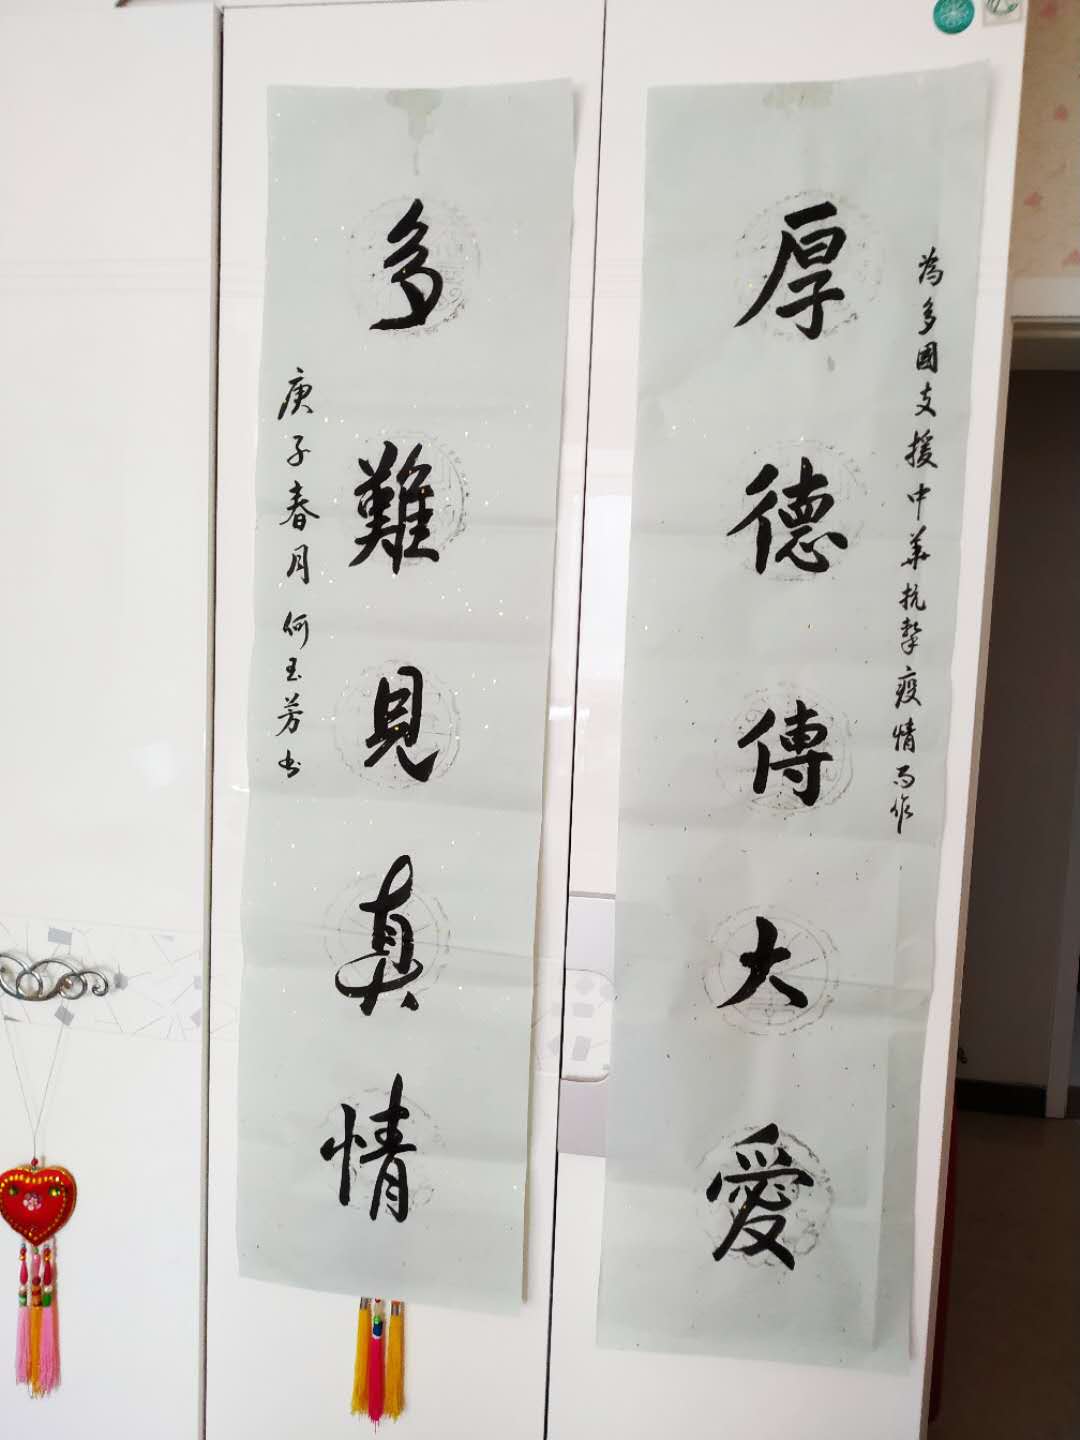 為多國支援中華抗擊疫情而作
厚德傳大愛
多難見真情
庚子春月何玉芳书